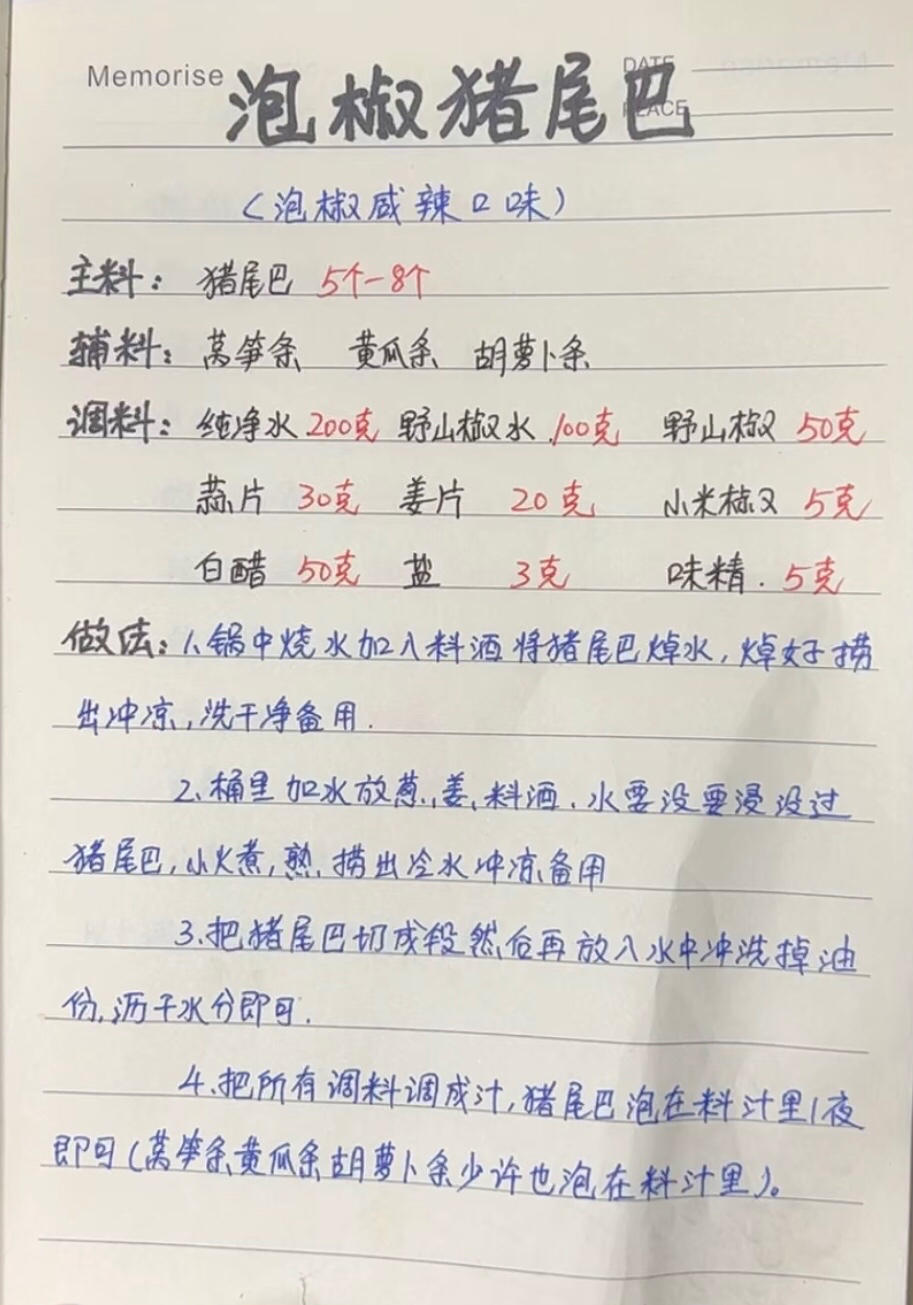 Memorise
DATE
PLACE
泡椒猪尾巴
(泡椒咸辣口味)
主料: 猪尾巴 5个-8个
辅料: 莴笋条 黄瓜条 胡萝卜条
调料: 纯净水 200克 野山椒水 100克 野山椒 50克
蒜片 30克 姜片 20克 小米椒 5克
白醋 50克 盐 3克 味精. 5克
做法: 1、锅中烧水加入料酒将猪尾巴焯水,焯好捞
出冲凉,洗干净备用.
2、桶里加水放葱、姜、料酒.水要没要浸没过
猪尾巴,小火煮,熟.捞出冷水冲凉备用
3.把猪尾巴切成段然后再放入水中冲洗掉油
份,沥干水分即可.
4.把所有调料调成汁,猪尾巴泡在料汁里1夜
即可(莴笋条黄瓜条胡萝卜条少许也泡在料汁里)。